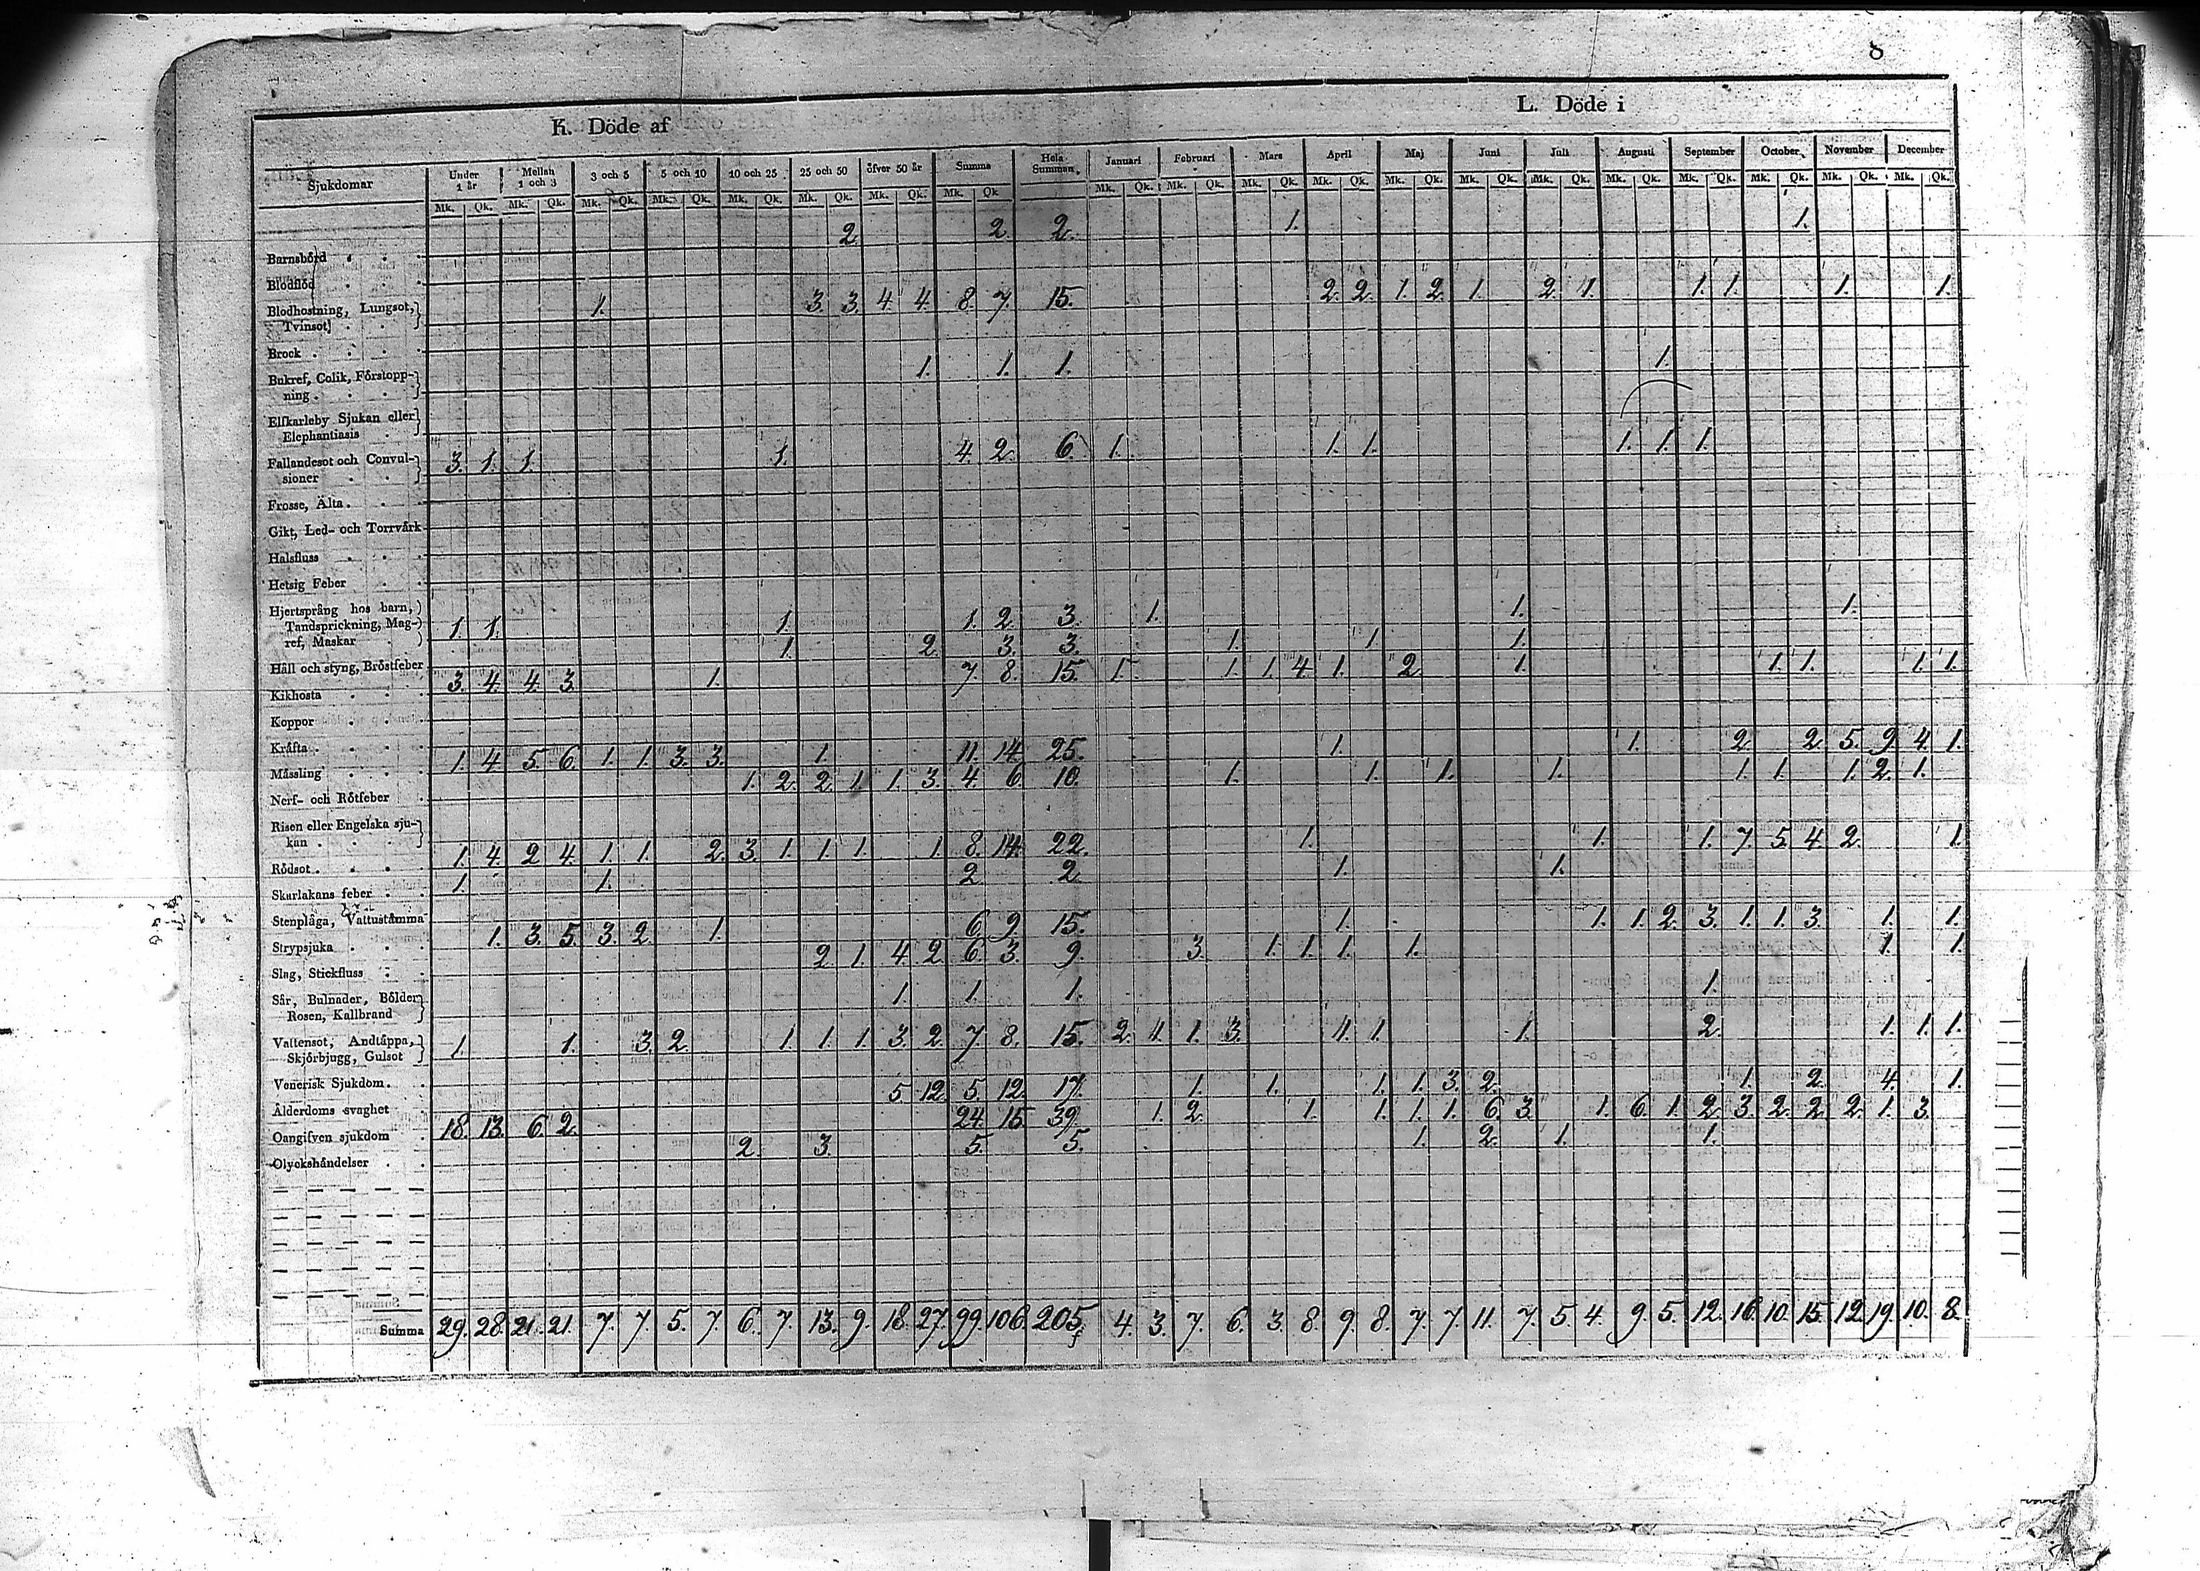 8
K. Döde af L. Döde i
Sjukdomar Under 1 år Mellan 1 och 3 3 och 5 5 och 10 10 och 25 25 och 50 öfver 50 år Summa Hela Summan Januari Februari Mars April Maj Juni Juli Augusti September October November December
Mk. Qk. Mk. Qk. Mk. Qk. Mk. Qk. Mk. Qk. Mk. Qk. Mk. Qk. Mk. Qk. Mk. Qk. Mk. Qk. Mk. Qk. Mk. Qk. Mk. Qk. Mk. Qk. Mk. Qk. Mk. Qk. Mk. Qk. Mk. Qk. Mk. Qk. Mk. Qk.
Barnsbörd 2 2. 2. 1. 1.
Blodflöd
Blodhostning, Lungsot,
Tvinsot 1. 3. 3. 4. 4. 8. 7. 15. 2. 2. 1. 2. 1. 2. 1. 1. 1. 1. 1.
Brock
Bukref, Colik, Förstopp-
ning 1. 1. 1. 1.
Elfkarleby Sjukan eller
Elephantiasis
Fallandesot och Convul-
sioner 3. 1. 1. 1. 4. 2. 6. 1. 1. 1. 1. 1. 1.
Frosse, Älta
Gikt, Led- och Torrvärk
Halsfluss
Hetsig Feber
Hjertsprång hos barn,
Tandsprickning, Mag-
ref, Maskar 1. 1. 1. 1. 2. 3. 1. 1. 1.
Håll och styng, Bröstfeber 1. 2. 3. 3. 1. 1. 1.
Kikhosta 3. 4. 4. 3. 1. 7. 8. 15. 1. 1. 1. 4. 1. 2. 1. 1. 1. 1. 1.
Koppor
Kräfta
Mässling 1. 4. 5. 6. 1. 1. 3. 3. 1. 11. 14. 25. 1. 1. 2. 2. 5. 9. 4. 1.
Nerf- och Rötfeber 1. 2. 2. 1. 1. 3. 4. 6. 10. 1. 1. 1. 1. 1. 1. 1. 2. 1.
Risen eller Engelska sju-
kan
Rödsot 1. 4. 2. 4. 1. 1. 2. 3. 1. 1. 1. 1. 8. 14. 22. 1. 1. 1. 7. 5. 4. 2. 1.
Skarlakans feber 1. 1. 2. 2. 1. 1.
Stenplåga, Vattustämma
Strypsjuka 1. 3. 5. 3. 2. 1. 6. 9. 15. 1. 1. 1. 2. 3. 1. 1. 3. 1. 1.
Slag, Stickfluss 2. 1. 4. 2. 6. 3. 9. 3. 1. 1. 1. 1. 1. 1.
Sår, Bulnader, Bölder
Rosen, Kallbrand 1. 1. 1. 1.
Vattensot, Andtäppa,
Skjörbjugg, Gulsot 1. 1. 3. 2. 1. 1. 1. 3. 2. 7. 8. 15. 2. 4. 1. 3. 4. 1. 1. 2. 1. 1. 1.
Venerisk Sjukdom
Ålderdoms svaghet 5 12. 5. 12. 17. 1. 1. 1. 1. 3. 2. 1. 2. 4. 1.
Oangifven sjukdom 18. 13. 6. 2. 24. 15. 39. 1. 2. 1. 1. 1. 1. 6. 3. 1. 6. 1. 2. 3. 2. 2. 2. 1. 3.
Olyckshändelser 2. 3. 5. 5. 1. 2. 1. 1.
Summa 29. 28. 21. 21. 7. 7. 5. 7. 6. 7. 13. 9. 18. 27. 99. 106. 205. 4. 3. 7. 6. 3. 8. 9. 8. 7. 7. 11. 7. 5. 4. 9. 5. 12. 16. 10. 15. 12. 19. 10. 8.